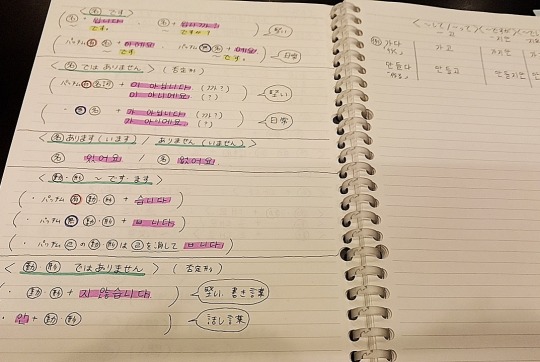 < 名 です >
名 + 입니다 . 名 + 입니까 ? 堅い
~です。 ~ですか?
( パッチム 有 名 + 이에요 . パッチム 無 名 + 예요 ) 日常
~です。
< 名 ではありません > (否定形)
( パッチム 有 名詞 + 이 아닙니다 (까?) 堅い
이 아니에요 (?)
( · 無 名 + 가 아닙니다 (까?) 日常
가 아니에요 (?)
< 名 あります(います) / ありません(いません) >
名 있어요 / 名 없어요
< 動・形 ~です・ます >
( · パッチム 有 動・形 + 습니다 )
( · パッチム 無 動・形 + ㅂ니다 )
( · パッチム ㄹ の 動・形 は ㄹ を消して ㅂ니다 )
< 動・形 ではありません > (否定形)
· 動・形 + 지 않습니다 堅い 書き言葉
· 안 + 動・形 話し言葉
<~して/~って> <~ですが>
-고 -지만
가다 가고 가지만
만들다 만들고 만들지만